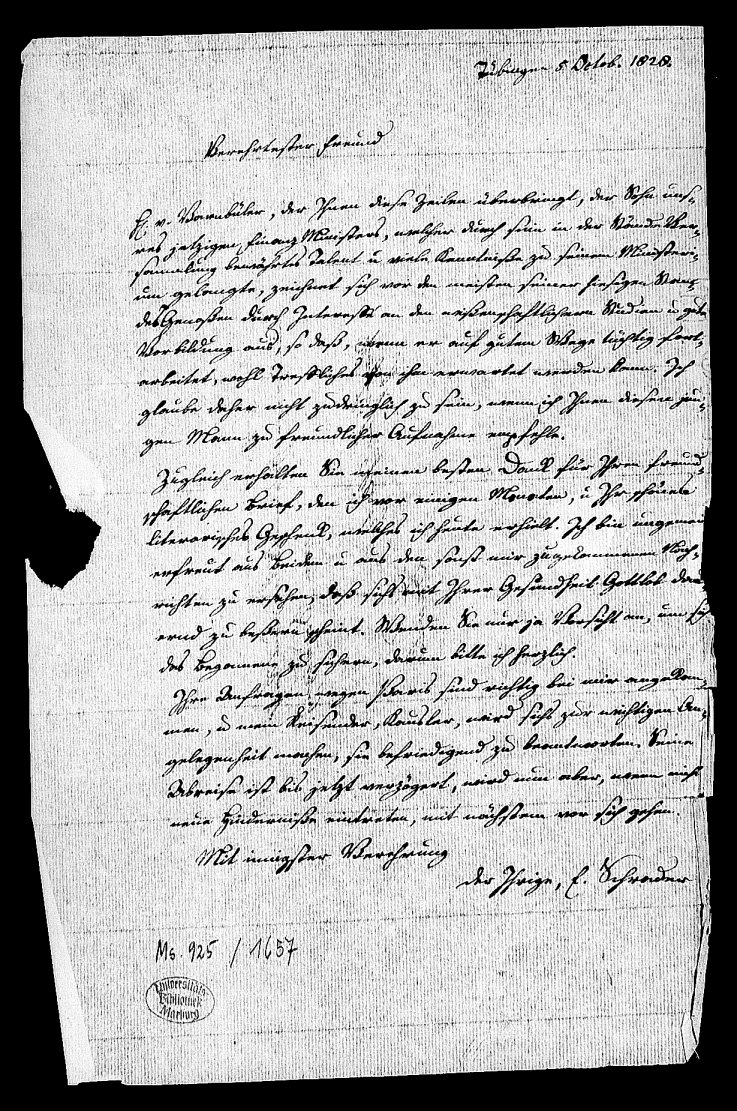 Tübingen 5 Octob. 1828.
Verehrtester Freund
H. v. Varnbüler, der Ihnen diese Zeilen überbringt, der Sohn uns-
res jetzigen Finanz Ministers, welcher durch sein in der Stände Ver-
sammlung bewährtes Talent u viele Kenntniße zu seinem Ministeri-
um gelangte, zeichnet sich vor den meisten seiner hiesigen Stan-
desGenoßen durch Interesse an den wißenschaftlichern Studien u gute
Vorbildung aus, so daß, wenn er auf gutem Wege tüchtig fort-
arbeitet, wohl Treffliches von ihm erwartet werden kann. Ich
glaube daher nicht zudringlich zu sein, wenn ich Ihnen diesen jun-
gen Mann zu freundlicher Aufnahme empfehle.
Zugleich erhalten Sie meinen besten Dank für Ihren freund-
schaftlichen Brief, den ich vor einigen Monaten, u Ihr schönes
literarisches Geschenk, welches ich heute erhielt. Ich bin ungemein
erfreut aus Beidem u aus den sonst mir zugekommenen Nach-
richten zu ersehen, daß sichs mit Ihrer Gesundheit Gottlob dau-
ernd zu beßern scheint. Wenden Sie nur ja Vorsicht an, um sich
das Begonnene zu sichern, darum bitte ich herzlich.
Ihre Anfragen wegen Paris sind richtig bei mir angekom-
men, u mein Reisender, Kausler, wird sichs zur wichtigen An-
gelegenheit machen, sie befriedigend zu beantworten. Seine
Abreise ist bis jetzt verzögert, wird nun aber, wenn nicht
neue Hinderniße eintreten, mit nächstem vor sich gehen.
Mit innigster Verehrung
der Ihrige, E. Schrader
Ms. 925 / 1657
Universitäts
Bibliothek
Marburg